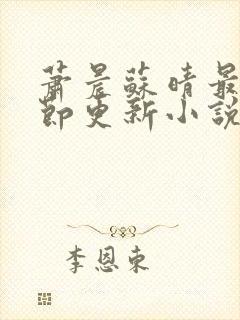 蕭晨蘇晴最
節更新小說
李恩東